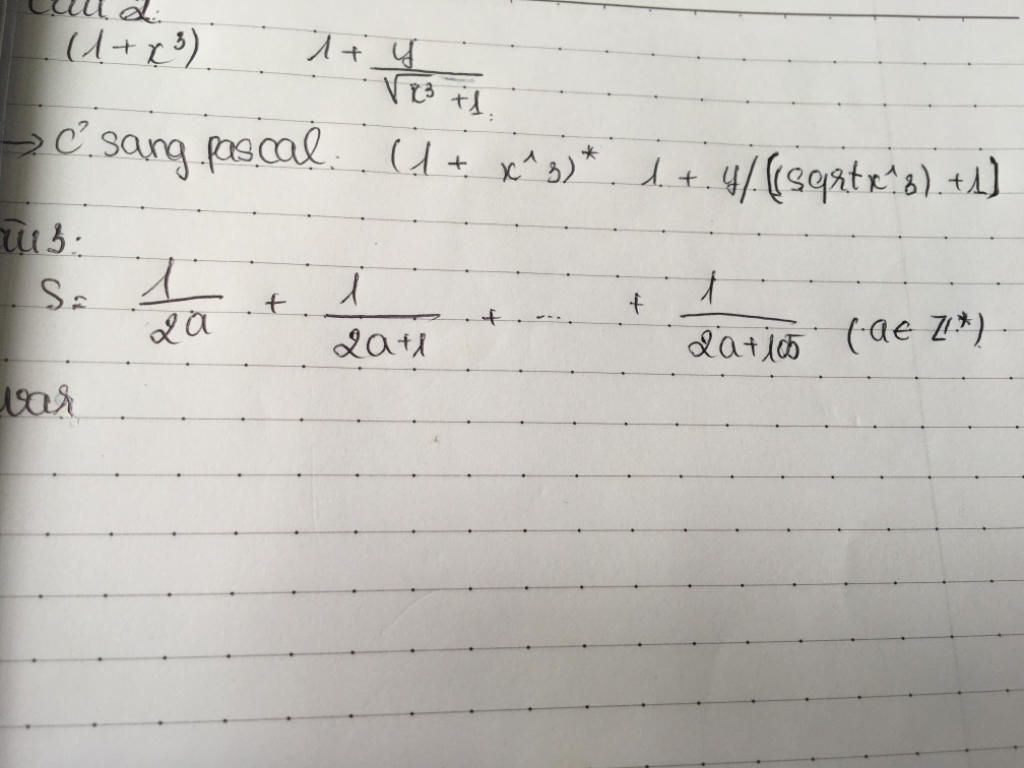 Câu 2:
(1 + x³) 1 + y/(√x³ + 1)
→ C² sang pascal. (1 + x^3)* 1 + y/[(sqrtx^3) + 1]
3:
S = 1/2a + 1/(2a+1) + ... + 1/(2a+100) (a ∈ Z*)
var